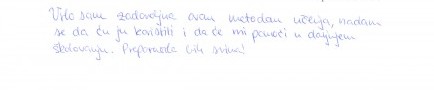 Vrlo sam zadovoljna ovom metodom učenja, nadam
se da ću ju koristiti i da će mi pomoći u daljnjem
školovanju. Preporučila bih svima!